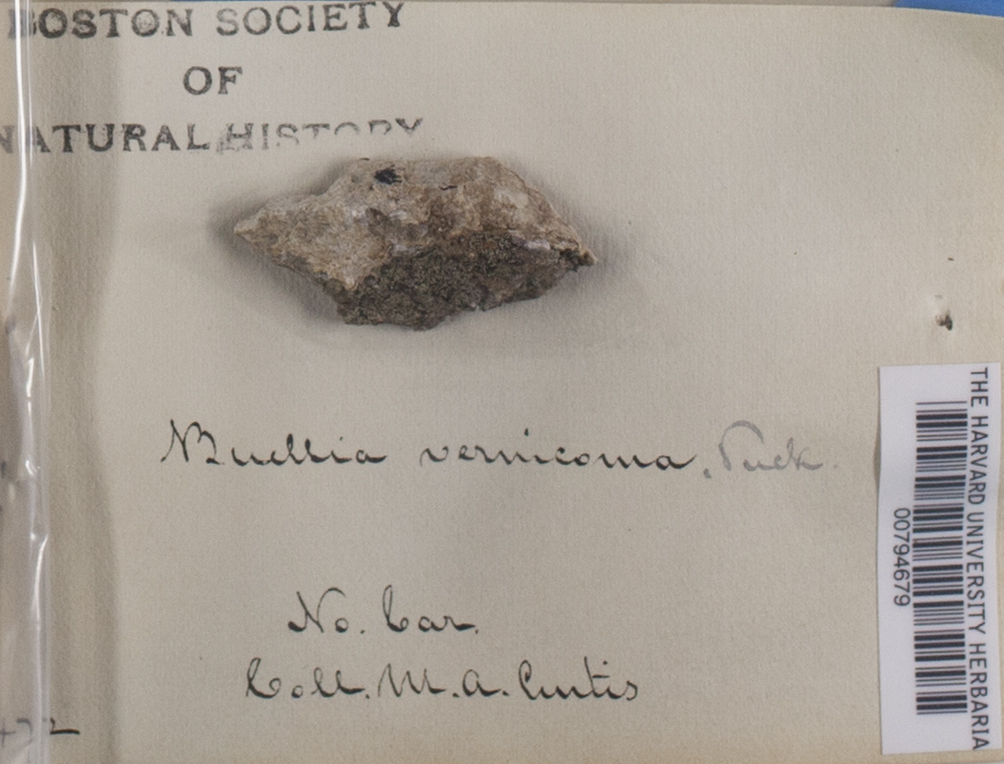 BOSTON SOCIETY
OF
NATURAL HISTORY
Buellia vernicoma, Tuck.
No. Car.
Coll. M. A. Curtis
THE HARVARD UNIVERSITY HERBARIA
00794679